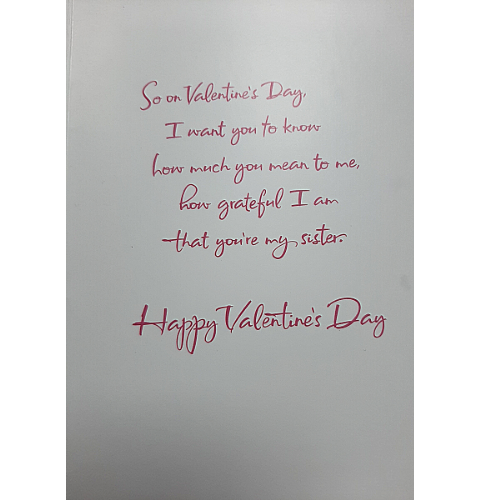 So on Valentine's Day,
I want you to know
how much you mean to me,
how grateful I am
that you're my sister.
Happy Valentine's Day